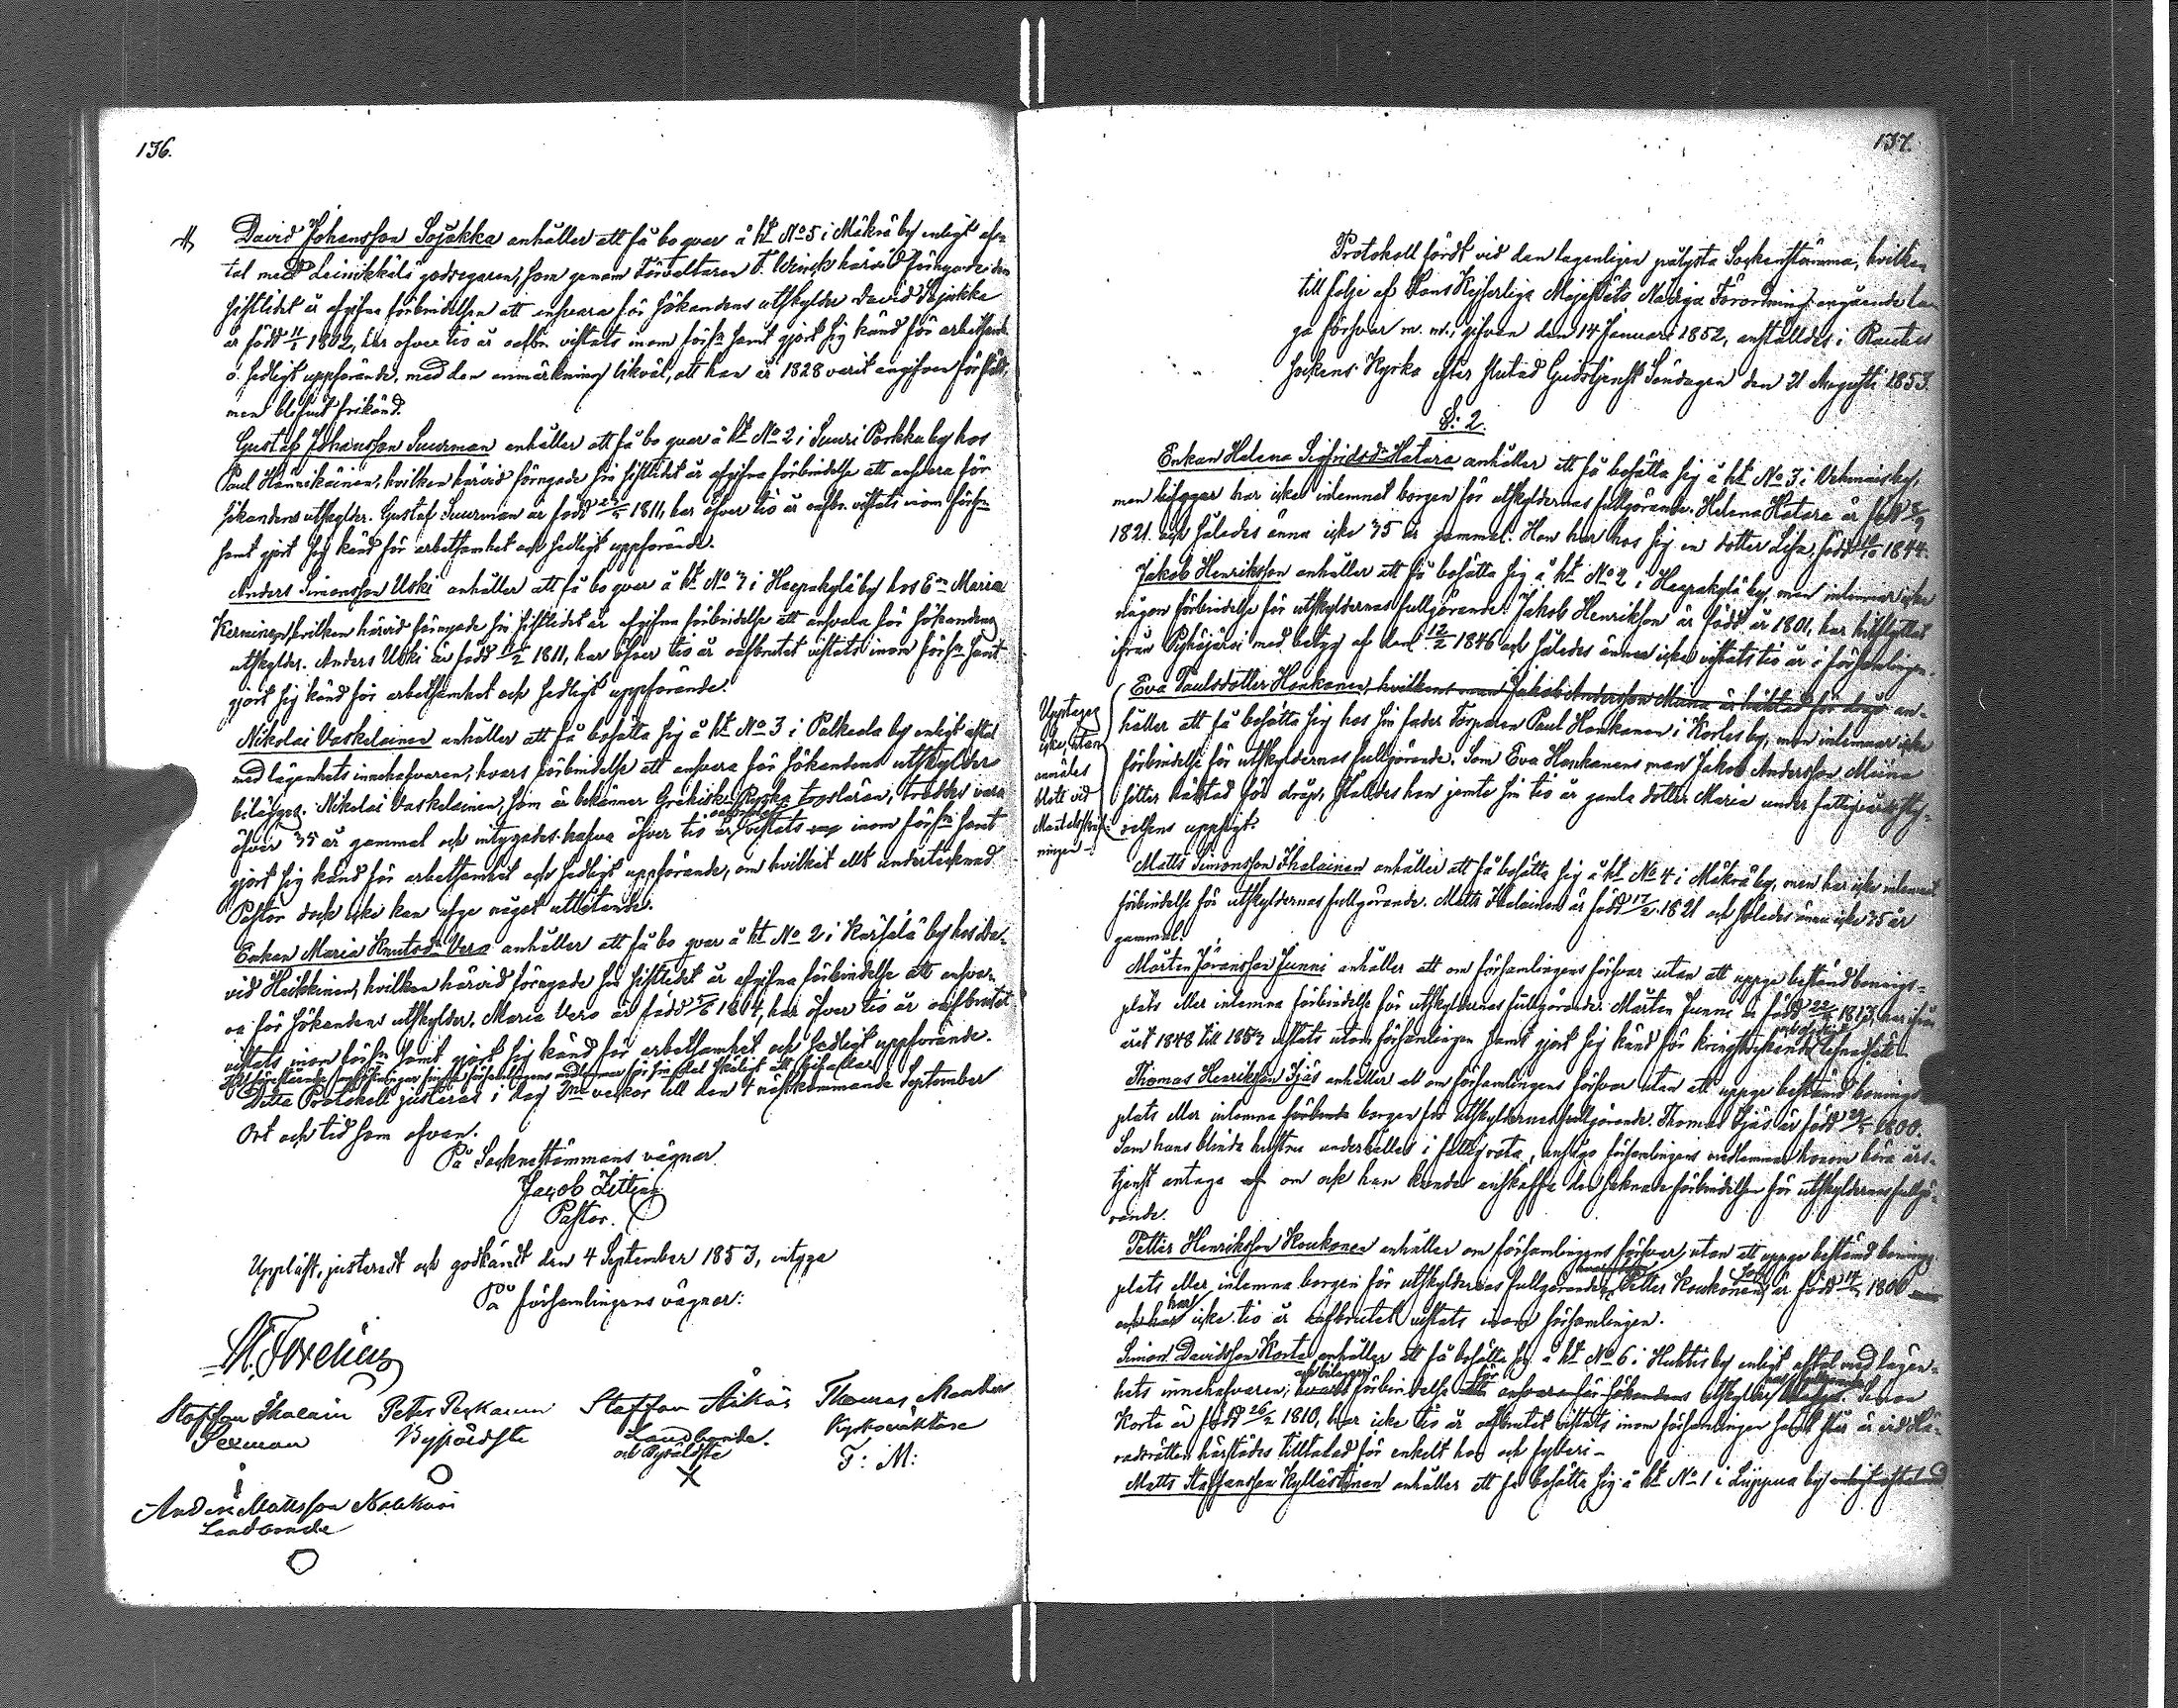 136.
David Johansson Sojakka anhåller att få bo qvar å ht No 5 i Mäkrä by enligt af-
tal med Leinikkälä godsegaren, som genom Förvaltaren F. Winck härvid förnyade den
sistlidet år afgifna förbindelsen att ansvara för sökandens utskylder David Sojakka
är född 1802, har öfver tio år oafbr. vistats inom försn samt gjort sig känd för arbetsamh.
o. sedligt uppförande, med den anmärkning likväl, att han år 1828 varit angifven för
men blifvit frikänd.
Gustaf Johansson Suurman anhåller att få bo qvar å ht No 2 i Suuri Porkka by hos
Paul Hännikäinen, hvilken härvid förnyade sin sistlidet år afgifna förbindelse att ansvara för
sökandens utskylder. Gustaf Suurman är född 1811, har öfver tio år oafbr. vistats inom försn
samt gjort sig känd för arbetsamhet och sedligt uppförande.
Anders Simonsson Uski anhåller att få bo qvar å ht No 7 i Haapakylä by hos En Maria
Kerninen, hvilken härvid förnyade sin sistlidet år afgifna förbindelse att ansvara för sökandens
utskylder. Anders Uski är född 1811, har öfver tio år oafbrutet vistats inom försn samt
gjort sig känd för arbetsamhet och sedligt uppförande.
Nikolai Vaskelainen anhåller att få bosätta sig å ht No 3 i Palkeala by enligt aftal
med lägenhets innehafvaren, hvars förbindelse att ansvara för sökandens utskylder
bilägges. Nikolai Vaskelainen, som är bekänner Grekisk Ryska trosläran, troddes vara
öfver 35 år gammal och intygades hafva öfver tio år oafbrutet vistats inom försn samt
gjort sig känd för arbetsamhet och sedligt uppförande, om hvilket allt undertecknad
Pastor dock icke kan afge något utlåtande.
Enkan Maria Knutsdr Vero anhåller att få bo qvar å ht No 2 i Karsälä by hos Da-
vid Heikkinen, hvilken härvid förnyade sin sistlidet år afgifna förbindelse att ansva-
ra för sökandens utskylder. Maria Vero är född 1804, har öfver tio år oafbrutet
vistats inom försn samt gjort sig känd för arbetsamhet och sedligt uppförande.
församlingens medlemmar för sin del skäligt att bifalla
Detta Protokoll justeras i dag 2ne veckor till den 4 nästkommande September
Ort och tid som ofvan.
På Sockenstämmans vägnar
Jacob Zitting
Pastor.
Uppläst, justeradt och godkändt den 4 September 1853, intyga
På församlingens vägnar:
M. Forelius
Staffan Ihalain Petter Staffan Thomas
Sexman Byåldste Landbonde. Kyrkoväktare
och Byåldste F: M:
X
Anders Mattsson
Landbonde
137.
Protokoll fördt vid den lagenligen pålysta Sockenstämma, hvilken
till följe af Hans Kejserliga Majestäts Nådiga Förordning angående la-
ga försvar m. m., gifven den 14 Januari 1852, anställdes i Rautus
sockens Kyrka efter slutad Gudstjenst Söndagen den 21 Augusti 1853.
§: 2.
Enkan Helena Sigfridsdr Hatara anhåller att få bosätta sig å ht No 3 i Vehmais by,
men hifogar har icke inlemnat borgen för utskyldernas fullgörande. Helena Hatara är född
1821. och således ännu icke 35 år gammal. Hon har hos sig en dotter Lisa, född 1844.
Jakob Henriksson anhåller att få bosätta sig å ht No 2 i Haapakylä by, men inlemnar icke
någon förbindelse för utskyldernas fullgörande. Jakob Henriksson är född år 1801, har hitflyttat
ifrån Pyhäjärvi med betyg af den 12/2 1846 och således ännu icke vistats tio år i församlingen.
Eva Paulsdotter Honkanen, hvilkens man Jakob Andersson Miina är häktad för dråp an-
håller att få bosätta sig hos sin fader Torparen Paul Honkanen i Korles by, men inlemnar icke
förbindelse för utskyldernas fullgörande. Som Eva Honkanens man Jakob Andersson Miina
sitter häktad för dråp, ställdes hon jemte sin tio år gamla dotter Maria under fattigvårdssty-
relsens uppsigt.
Upptages
icke, utan
anmäles
blott vid
Mantalsskrif-
ningen
Matts Simonsson Ihalainen anhåller att få bosätta sig å ht No 4 i Mäkrä by, men har icke inlemnat
förbindelse för utskyldernas fullgörande. Matts Ihalainen är född 17/2 1821 och således ännu icke 35 år
gammal.
Mårten Jöransson Junni anhåller att om församlingens försvar utan att uppge bestämd bonings-
plats eller inlemna förbindelse för utskyldernas fullgörande. Mårten Junni är född 1813, har ifrån
året 1848 till 1853 vistats utom församlingen samt gjort sig känd för kringstrykande lefnadssätt
Thomas Henriksson Ijäs anhåller att om församlingens försvar utan att uppge bestämd bonings-
plats eller inlemna förbinde borgen för utskyldernas fullgörande. Thomas Ijäs är född 1800.
Som hans blinda hustru underhålles i fattigrota, ansågo församlingens medlemmar honom böra års-
tjenst antaga om och han kunde anskaffa den saknade förbindelsen för utskyldernas fullgö-
rande.
Petter Henriksson Koukonen anhåller om församlingens försvar, utan att uppge bestämd bonings-
plats eller inlemna borgen för utskyldernas fullgörande, Petter Koukonen, som är född 1806
och har icke tio år oafbrutet vistats inom församlingen.
Simon Davidsson Korte anhåller att få bosätta sig å ht No 6 i Huhtis by enligt aftal med lägen-
hets innehafvaren, och bilägger hvars förbindelse för att ansvara för sökandens utskylders Simon
Korte är född 26/2 1810, har icke tio år oafbrutet vistats inom församlingen samt står är vid Hä-
radsrätten härstädes tilltalad för enkelt hor och fylleri-
Matts Staffansson Kylläistinen anhåller att få bosätta sig å ht No 1 i Liippua by